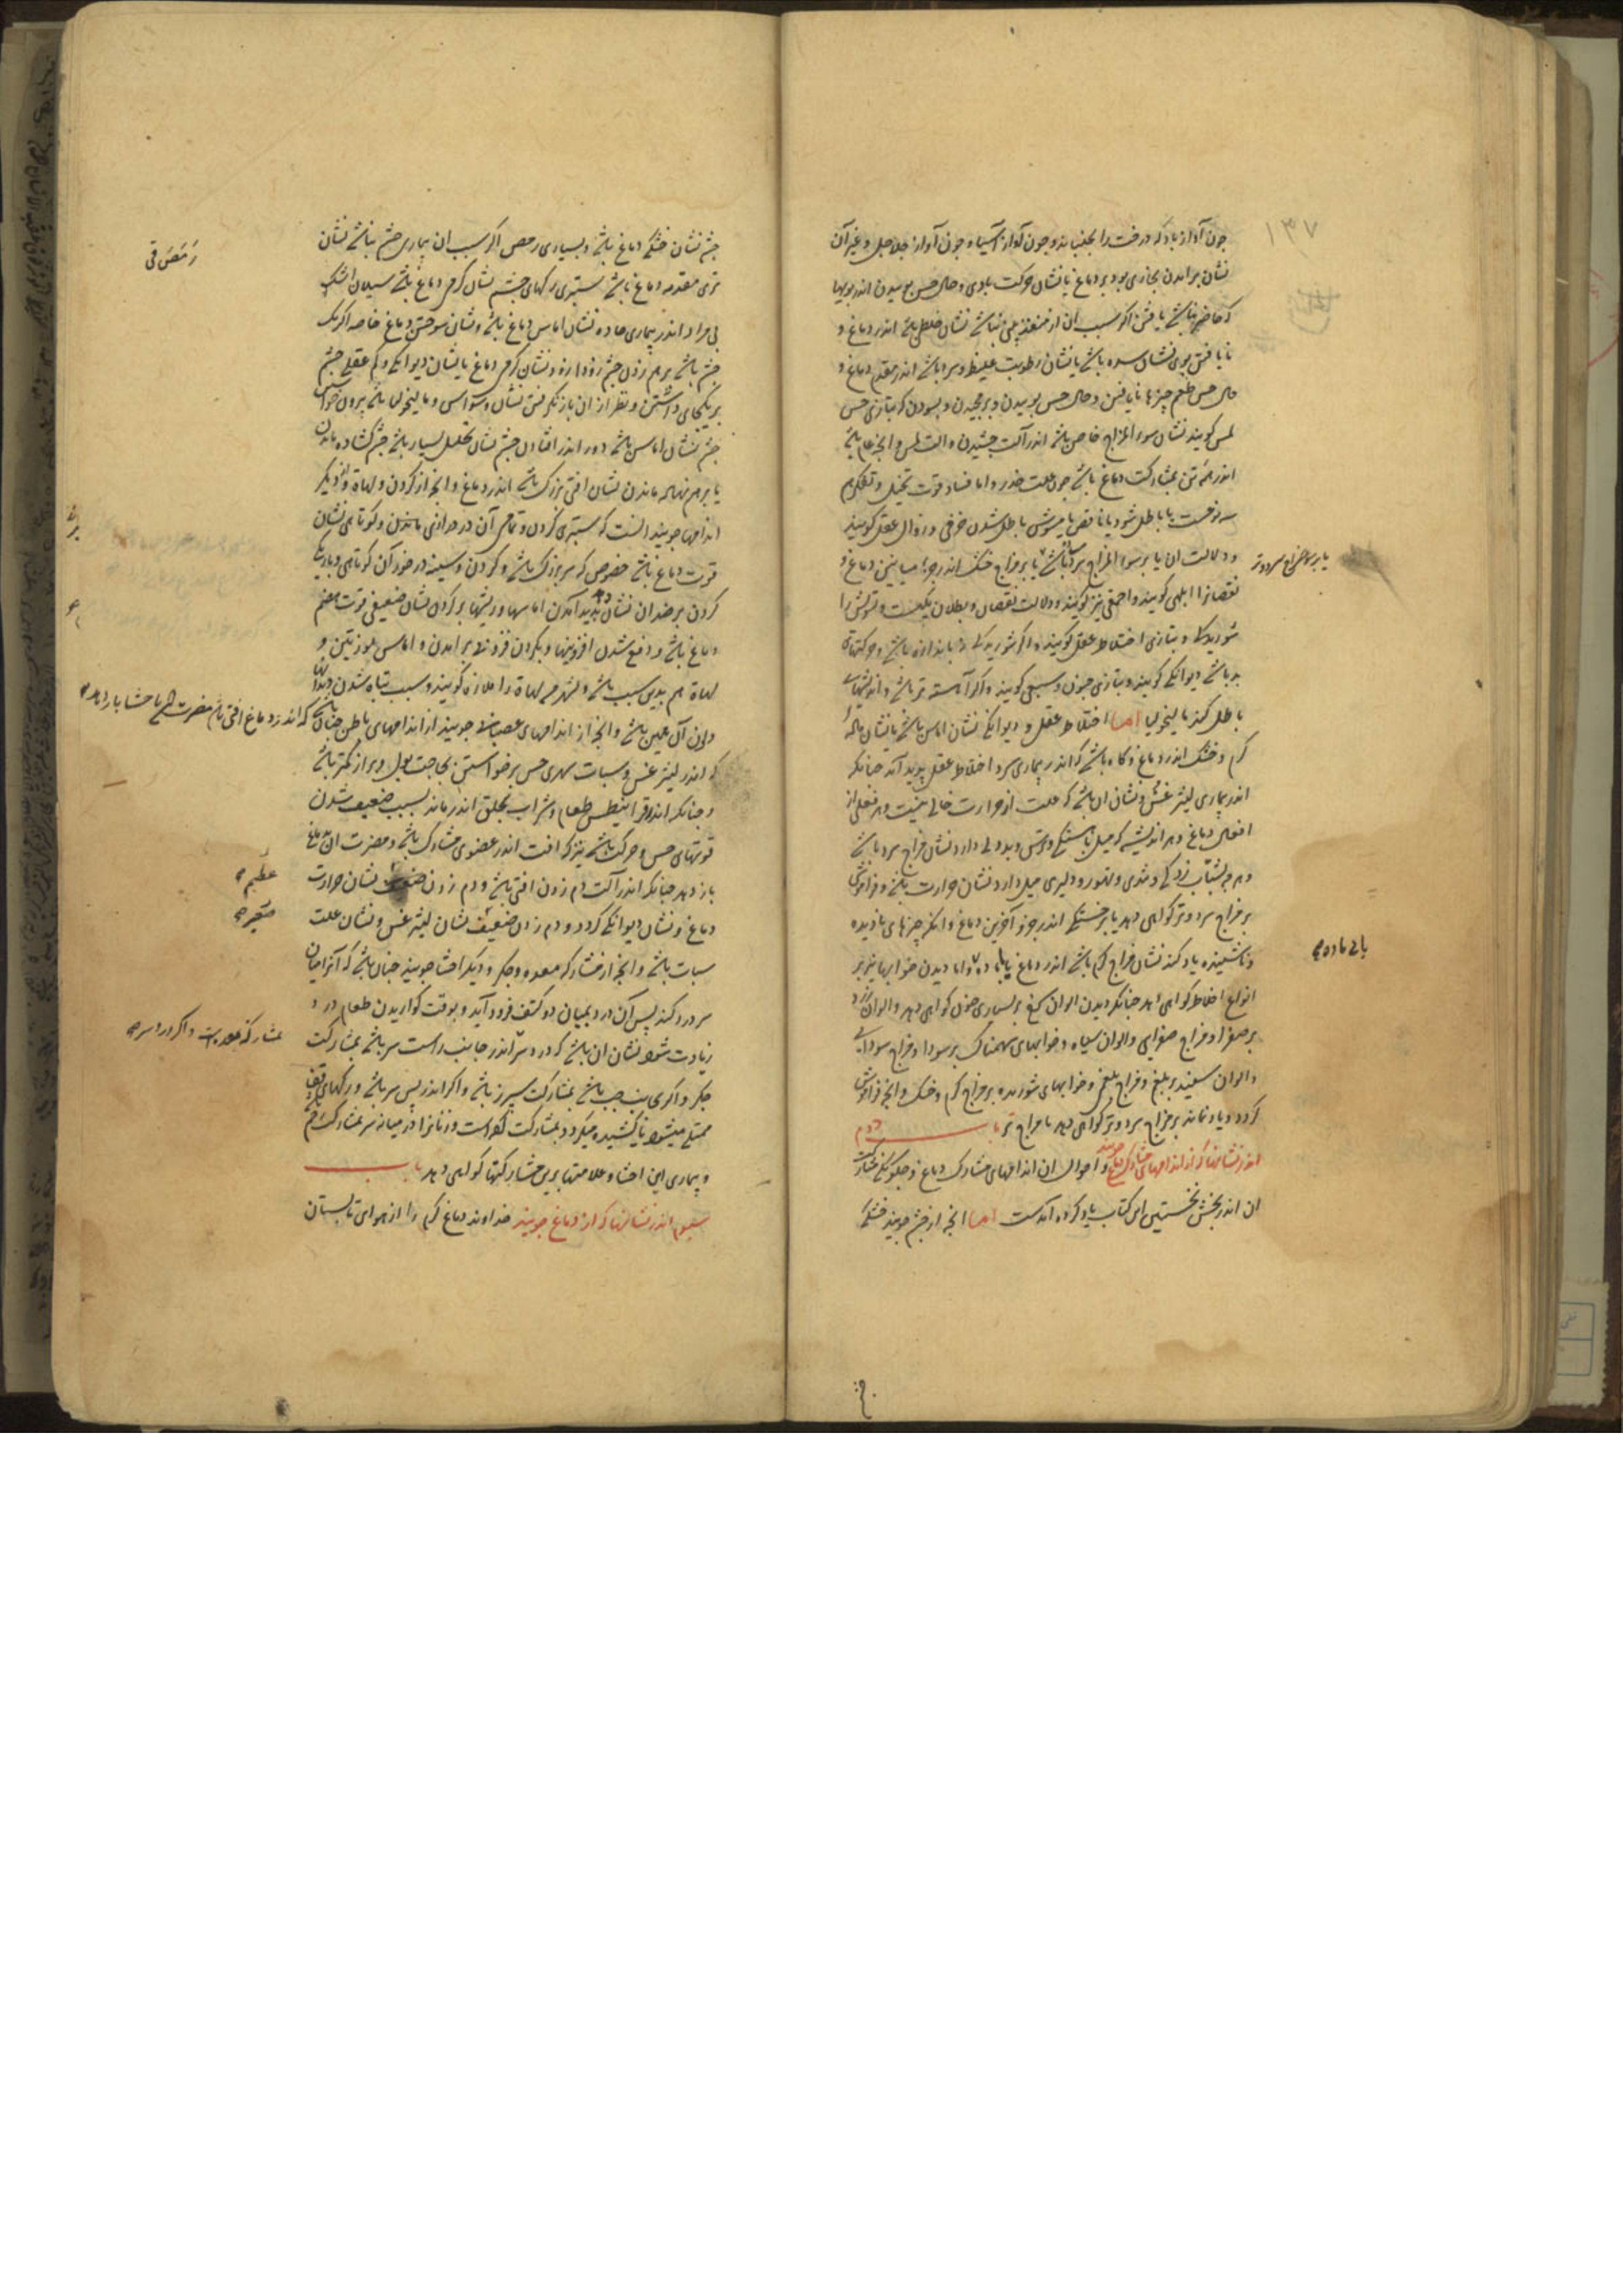 ۱۳۷
چون آواز باد که درخت را بجنباند و چون آواز آسیا و چون آواز جلاجل و غیر آن
نشان بر آمدن بخاری بود بر دماغ یا نشان حرکت بادی و حال حس بوییدن اندر بویها
که حاضر نباشد یافتن اکر سبب آن از منفذ بینی نباشد نشان خلطی باشد اندر دماغ و
نایافتن بوی نشان سده باشد یا نشان رطوبت غلیظ و سرد باشد اندر مقدم دماغ و
حال حس طعم چیزها نایافتن و حال حس بوییدن و بر مجیدن و بسودن که بتازی حس
لمس کویند نشان سوء المزاج خاص باشد اندر آلت چشیدن و آلت لمس و انچه عام باشد
اندر همه تن بمشارکت دماغ باشد چون علت خدر و اما فساد قوت تخیل و تفکر هم
سه نوعست یا باطل شود یا ناقص یا مشوش باطل شدن خرفی و زوال عقل کویند
و دلالت آن یا بر سوء المزاج سرد باشد یا بر مزاج خشک اندر جزء میانین دماغ و
یا بر مزاج سرد و تر
نقصان را ابلهی کویند و احمقی نیز کویند و دلالت نقصان و بطلان یکیست و تشویش را
شوریدکی و بتازی اختلاط عقل کویند و اکر شوریدکی نا باندازه باشد و حرکتهای
بد باشد دیوانکی کویند و بتازی جنون و سبعی کویند و اکر آهسته تر باشد و اندیشهای
باطل کند مالیخولیا اما اختلاط عقل و دیوانکی نشان اماس باشد یا نشان ماده
کرم و خشک اندر دماغ و کاه باشد که اندر بیماری سرد اختلاط عقل پدید آید چنانکه
اندر بیماری لیثرغس و نشان آن باشد که علت از حرارت خالی نیست و هر فعلی از
افعال دماغ و هر اندیشه که میل باهستکی و ترس و بددلی دارد نشان مزاج سرد باشد
و هرچه بشتاب زدکی و تندی و تهور و دلیری میل دارد نشان حرارت باشد و فراموشی
بر مزاج سرد و تر کواهی دهد یا بر خشکی اندر جزو آخرین دماغ و انکه چیزهای نادیده
و ناشنیده یاد کند نشان مزاج کرم باشد اندر دماغ با ماده و اما دیدن خوابها نیز بر
با بی ماده
انواع اخلاط کواهی دهد چنانکه دیدن الوان سرخ بر بسیاری خون کواهی دهد و الوان زرد
بر صفرا و مزاج صفرایی و الوان سیاه و خوابهای سهمناک بر سودا و مزاج سودایی
و الوان سپید بر بلغم و مزاج بلغمی و خوابهای شوریده بر مزاج کرم و خشک و انچه فراموش
کردد و یاد نماند بر مزاج سرد و تر کواهی دهد با مزاج تر باب دوم
اندر نشانیها که از اندامهای مشارک دماغ جویند و احوال آن اندامهای مشارک دماغ و چکونکی مشارکت
آن اندر بخش نخستین این کتاب یاد کرده آمدست اما انچه از چشم جویند خشکی
چشم نشان خشکی دماغ باشد و بسیاری رمص اکر سبب آن بیماری چشم نباشد نشان
رَمَص قی
تری مقدمه دماغ باشد ستبری رکهای چشم نشان کرمی دماغ باشد سیلان اشک
بی مراد اندر بیماری حاده نشان اماس دماغ باشد و نشان سوختن دماغ خاصه اکر یک
چشم باشد بر هم زدن چشم زود زود نشان کرمی دماغ یا نشان دیوانکی و کم عقلی چشم
بر یکجای داشتن و نظر از آن باز نکرفتن نشان وسواس و مالیخولیا باشد بیرون خواستن
چشم نشان اماس باشد دور اندر افتادن چشم نشان تحلل بسیار باشد چشم کشاده ماندن
یا بر هم نهاده ماندن نشان افتی بزرک باشد اندر دماغ و انچه از کردن و لهاة و از دیکر
اندامها جویند انست که ستبری کردن و تمامی آن در درازی ماندن و کوتاهی نشان
قوت دماغ باشد خصوص که سر بزرک باشد و کردن و سینه در خور آن کوتاهی و باریکی
کردن بر ضد آن نشان دهد پدید آمدن اماسها و ریشها بر کردن نشان ضعیفی قوت هضم
دماغ باشد و دفع شدن افزونیها و بکردن فزونها بر آمدن و اماس لوزتین و
لهاة هم بدین سبب باشد و بشهر من لهاة را ملازه کویند و سبب تباه شدن دندان
و لون آن همین باشد و انچه از اندامهای عصبانی جویند از اندامهای باطن چنان باشد
که اندر دماغ افتی باشد مضرت آن باحشا باز دهد
که اندر لیثرغس و سبات سهری حس برخواستن بحاجت بول و براز کمتر باشد
و چنانکه اندر قرانیطس طعام و شراب بحلق اندر ماند بسبب ضعیف شدن
قوتهای حس و حرکت باشد نیز که افت اندر عضوی مشارک باشد و مضرت آن بدماغ
باز دهد چنانکه اندر آلت دم زدن افتی باشد و دم زدن نشان حرارت
عظیم
دماغ و نشان دیوانکی کردد و دم زدن ضعیف نشان لیثرغس و نشان علت
صغیر
سبات باشد و انچه از مشارکه معده و جکر و دیکر احشا جویند چنان باشد که اکر از میان
سر درد کند پس آن درد بمیان دو کتف فرود آید و بوقت کواریدن طعام درد
زیادت شود نشان آن باشد که درد سر اندر جانب راست سر باشد بمشارکت
بمشارکه معدست و اکر درد سر
جکر و اکر بجانب چپ باشد بمشارکت سپرز باشد و اکر اندر پس سر باشد و رکهای قفا
ممتلی میشود یا کشیده میکردد بمشارکت کمرست و زنانرا در میانه سر بمشارکت رحم
و بیماری این احشا و علامتها برین مشارکتها کواهی دهد باب
سیوم اندر نشانیها که از دماغ جویند خداوند دماغ کرم را از هوای تابستان